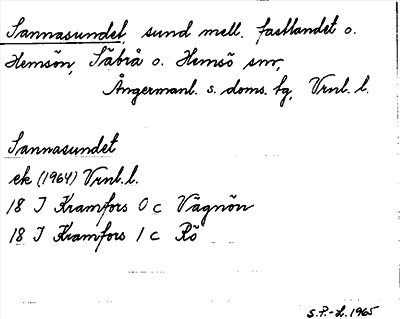 Sannasundet, sund mell. fastlandet o.
Hemsön, Säbrå o. Hemsö snr,
Ångermanl. s. doms. tg, Vrnl. l.
Sannasundet
ek (1964) Vrnl. l.
18 I Kramfors 0 c Vägnön
18 I Kramfors 1 c Rö
S.P.-L. 1965